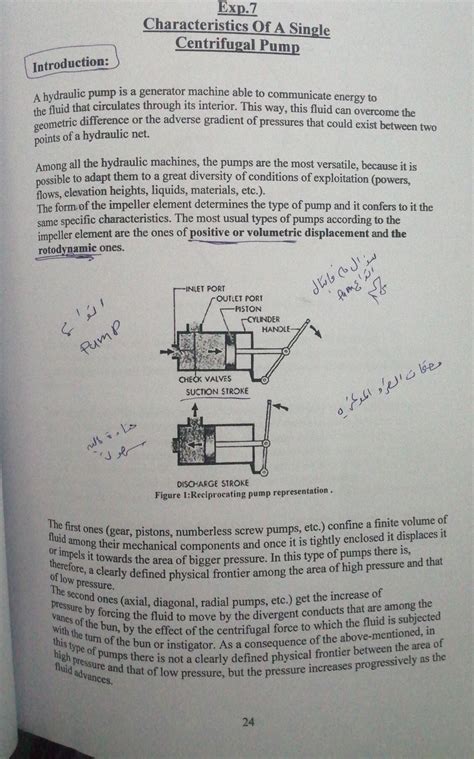 Exp.7
Characteristics Of A Single
Centrifugal Pump
Introduction:
A hydraulic pump is a generator machine able to communicate energy to
the fluid that circulates through its interior. This way, this fluid can overcome the
geometric difference or the adverse gradient of pressures that could exist between two
points of a hydraulic net.
Among all the hydraulic machines, the pumps are the most versatile, because it is
possible to adapt them to a great diversity of conditions of exploitation (powers,
flows, elevation heights, liquids, materials, etc.).
The form of the impeller element determines the type of pump and it confers to it the
same specific characteristics. The most usual types of pumps according to the
impeller element are the ones of positive or volumetric displacement and the
rotodynamic ones.
INLET PORT
OUTLET PORT
PISTON
CYLINDER
HANDLE
pump
PUMP
CHECK VALVES
SUCTION STROKE
DISCHARGE STROKE
Figure 1:Reciprocating pump representation .
The first ones (gear, pistons, numberless screw pumps, etc.) confine a finite volume of
fluid among their mechanical components and once it is tightly enclosed it displaces it
or impels it towards the area of bigger pressure. In this type of pumps there is,
therefore, a clearly defined physical frontier among the area of high pressure and that
of low pressure.
The second ones (axial, diagonal, radial pumps, etc.) get the increase of
pressure by forcing the fluid to move by the divergent conducts that are among the
vanes of the bun, by the effect of the centrifugal force to which the fluid is subjected
with the turn of the bun or instigator. As a consequence of the above-mentioned, in
this type of pumps there is not a clearly defined physical frontier between the area of
high pressure and that of low pressure, but the pressure increases progressively as the
fluid advances.
24